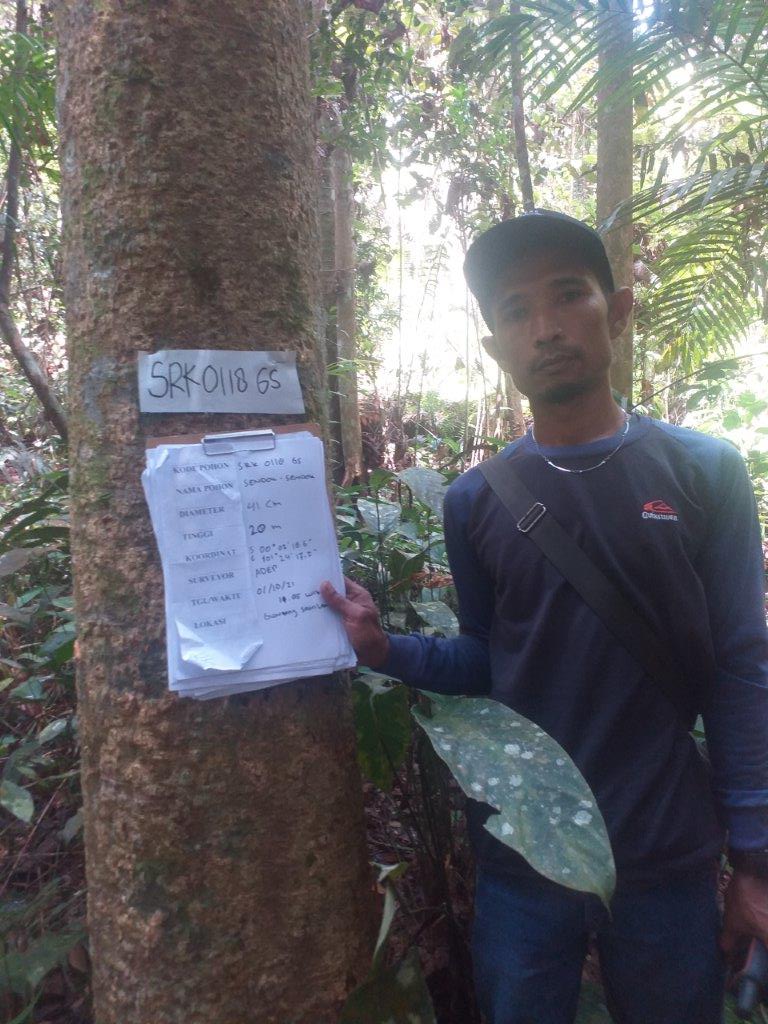 SRK 0118 GS
KODE POHON SRK 0118 GS
NAMA POHON SENDOK - SENDOK
DIAMETER 41 Cm
TINGGI 20 m
KOORDINAT S 00° 02' 18.6"
E 101° 24' 17.2"
SURVEYOR ADEP
TGL/WAKTU 01/10/21
14.05 WIB
LOKASI Gunung
QUIKSILVER